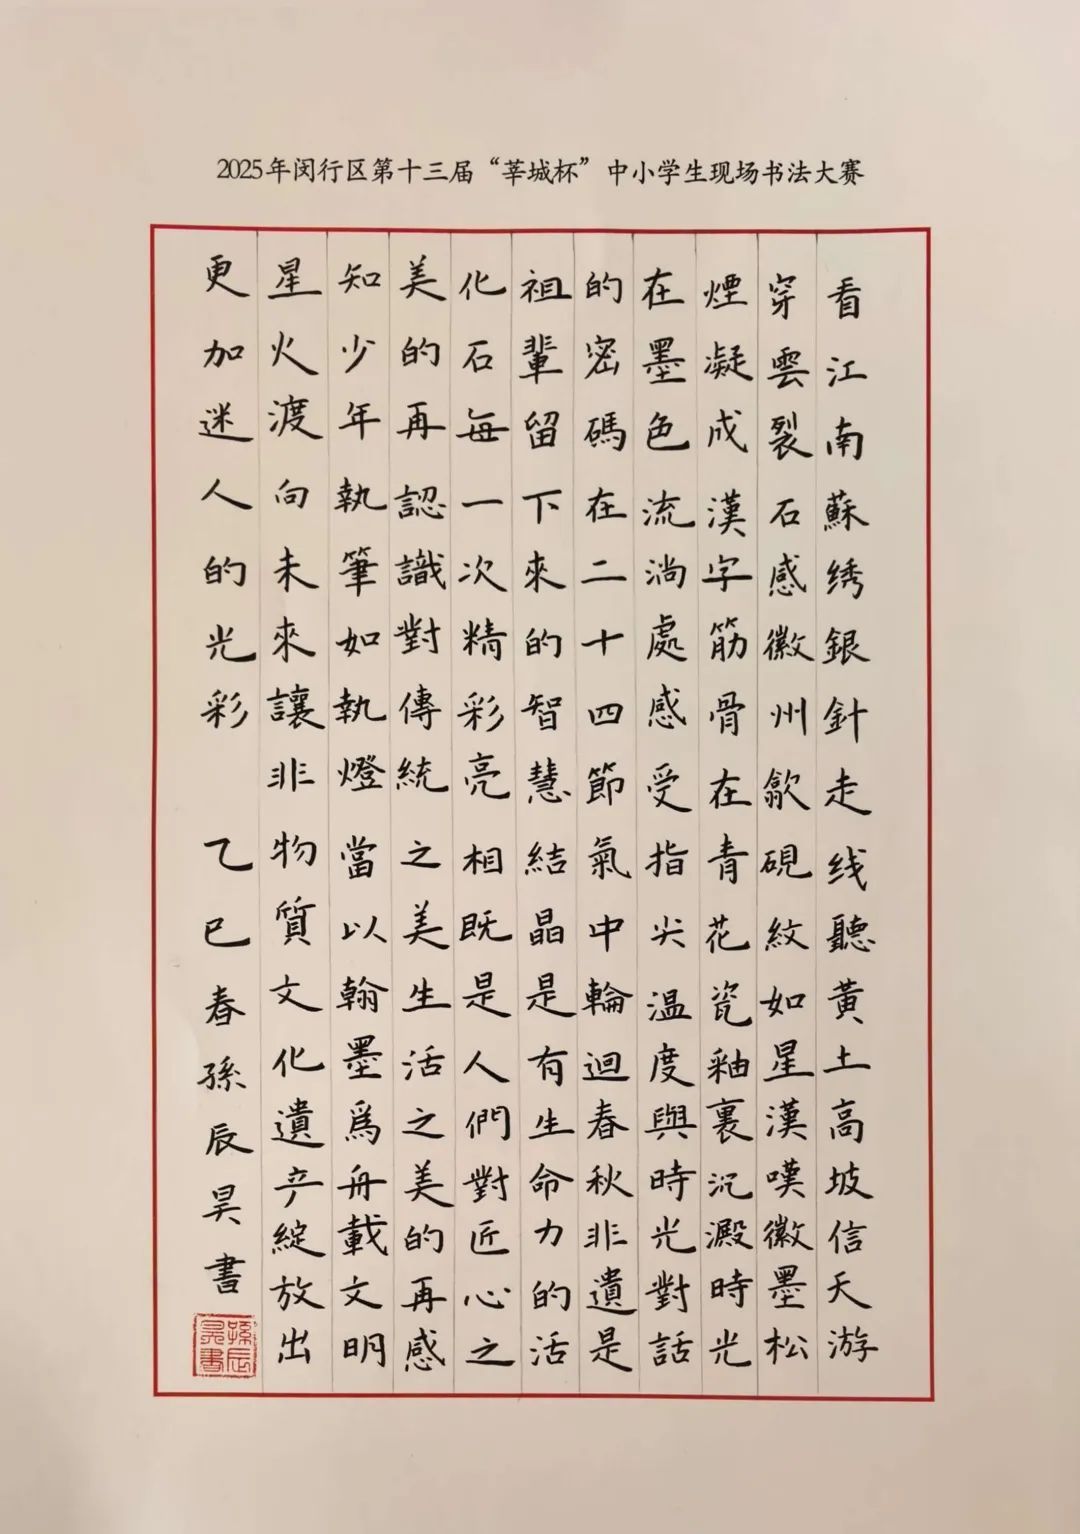 2025年闵行区第十三届“莘城杯”中小学生现场书法大赛
看江南蘇绣銀針走线聽黃土高坡信天游
穿雲裂石感徽州歙硯紋如星漢嘆徽墨松
煙凝成漢字筋骨在青花瓷釉裏沉澱時光
在墨色流淌處感受指尖温度與時光對話
的密碼在二十四節氣中輪迴春秋非遺是
祖輩留下來的智慧結晶是有生命力的活
化石每一次精彩亮相既是人們對匠心之
美的再認識對傳統之美生活之美的再感
知少年執筆如執燈當以翰墨爲舟載文明
星火渡向未來讓非物質文化遺产綻放出
更加迷人的光彩 乙巳春孫辰昊書
孫辰昊書